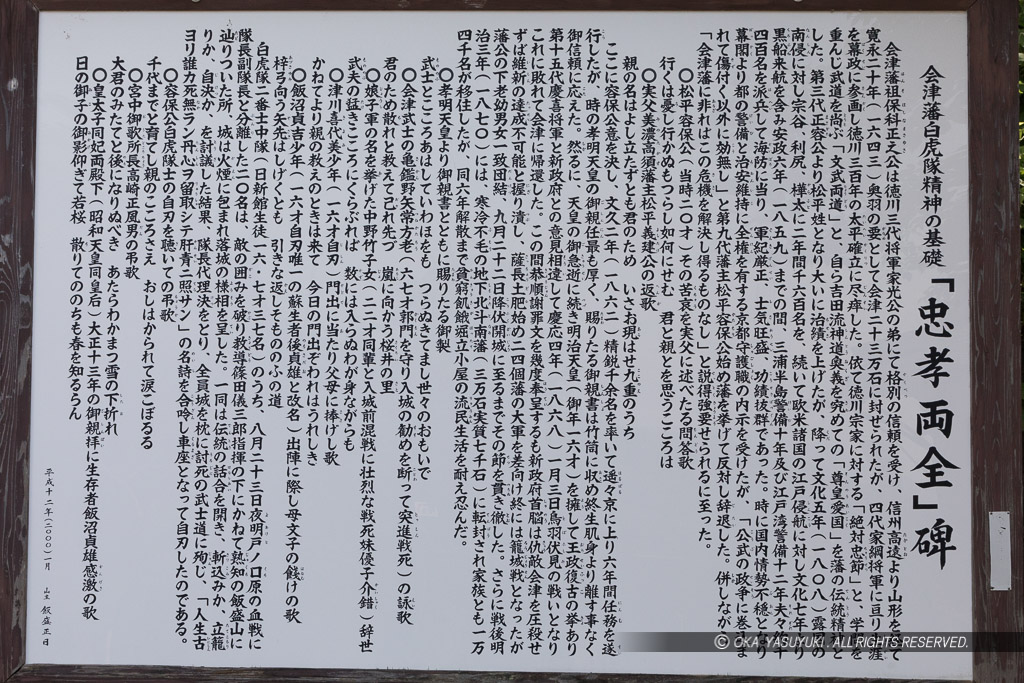 会津藩白虎隊精神の基礎「忠孝両全」碑
会津藩祖保科正之公は徳川三代将軍家光公の弟にて格別の信頼を受け、信州高遠より山形を経て
寛永二十年（一六四三）奥羽の要として会津二十三万石に封せられたが、四代家綱将軍に亘り生涯
を幕政に参画し徳川三百年の太平確立に尽瘁した。依て徳川宗家に対する「絶対忠節」と、学問を
重んじ武道を尚ぶ「文武両道」と、自ら吉田流神道奥義を究めての「尊皇愛国」を藩の伝統精神と
した。第三代正容公より松平姓となり大いに治績を上げたが、降って文化五年（一八〇八）露国の
南侵に対し宗谷、利尻、樺太に二年間千六百名を、続いて欧米諸国の江戸侵航に対し文化七年より
黒船来航を含み安政六年（一八五九）までの間、三浦半島警備十年及び江戸湾警備十二年夫々千
四百名を派兵して海防に当り、軍紀厳正、士気旺盛、功績抜群であった。時に国内情勢不穏となり
幕閣より都の警備と治安維持に全権を有する京都守護職の内示を受けたが、「公武の政争に巻込ま
れて傷付く以外に効無し」と第九代藩主松平容保公始め藩を挙げて反対し辞退した。併しながら
「会津藩に非ればこの危機を解決し得るものなし」と説得強要せられるに至った。
〇松平容保公（当時二〇才）その苦衷を実父に述べたる問答歌
行くは憂し行かぬもつらし如何にせむ　君と親とを思うこころは
〇実父美濃高須藩主松平義建公の返歌
親の名はよし立たずとも君のため　いさお現はせ九重のうち
ここに容保公意を決し、文久二年（一八六二）精鋭千余名を率いて遥々京に上り六年間任務を遂
行したが、時の孝明天皇の御親任最も厚く、賜りたる御親書は竹筒に収め終生肌身より離す事なく
御信頼に応えた。然るに、天皇の御急逝に続き明治天皇（御年一六才）を擁して王政復古の挙あり
第十五代慶喜将軍と新政府との意見相違して慶応四年（一八六八）一月三日鳥羽伏見の戦いとなり
これに敗れて会津に帰還した。この間恭順謝罪文を幾度奉呈するも新政府首脳は仇敵会津を圧殺せ
ずば維新の達成不可能と握り潰し、薩長土肥始め二四個藩の大軍を差向け終には籠城戦となったが
藩公の下老幼男女一致団結、九月二十二日降伏開城に至るまでその節を貫き徹した。さらに戦後明
治三年（一八七〇）には、寒冷不毛の地下北斗南藩（三万石実質七千石）に転封され家族とも一万
四千名が移住したが、同六年解散まで貧窮飢餓掘立小屋の流民生活を耐え忍んだ。
〇孝明天皇より御親書とともに賜りたる御製
武士とこころあはしていわほをも　つらぬきてまし世々のおもいで
〇会津武士の亀鑑野矢常方老（六七才郭門を守り入城の勧めを断って突進戦死）の詠歌
君のため散れと教えて己れ先づ　嵐に向かう桜井の里
〇娘子軍の名を挙げた中野竹子女（二二才同輩と入城前混戦に壮烈な戦死妹優子介錯）辞世
武夫の猛きこころにくらぶれば　数には入らぬわが身ながらも
〇津川喜代美少年（一六才自刃）門出に当たり父母に捧げし歌
かねてより親の教えのときは来て　今日の門出ぞわれはうれしき
〇飯沼貞吉少年（一六才自刃唯一の蘇生者後貞雄と改名）出陣に際し母文子の餞けの歌
梓弓向う矢先はしげくとも　引きな返しそもののふの道
白虎隊二番士中隊（日新館生徒一六・七才三七名）のうち、八月二十三日夜明戸ノ口原の血戦に
隊長副隊長と分離した二〇名は、敵の囲みを破り教導篠田儀三郎指揮の下にかねて熟知の飯盛山に
辿りついた所、城は火煙に包まれ落城の様相を呈した。一同は伝統の話合を開き、斬込みか、立籠
りか、自決か、を討議した結果、隊長代理決をとり、全員城を枕に討死の武士道に殉じ、「人生古
ヨリ誰カ死無ランヤ丹心ヲ留取シテ肝青ニ照サン」の名詩を合吟し車座となって自刃したのである。
〇容保公白虎隊士の自刃を聴いての弔歌
千代までと育てし親のこころさえ　おしはかられて涙こぼるる
〇宮中御歌所長高崎正風男の弔歌
大君のみたてと後になりぬべき　あたらわかまつ雪の下折れ
〇皇太子同妃両殿下（昭和天皇同皇后）大正十三年の御親拝に生存者飯沼貞雄感激の歌
日の御子の御影仰ぎて若桜　散りてののちも春を知るらん
平成十二年（二〇〇〇）一月　山主 飯盛正日
© OKA YASUYUKI. ALL RIGHTS RESERVED.